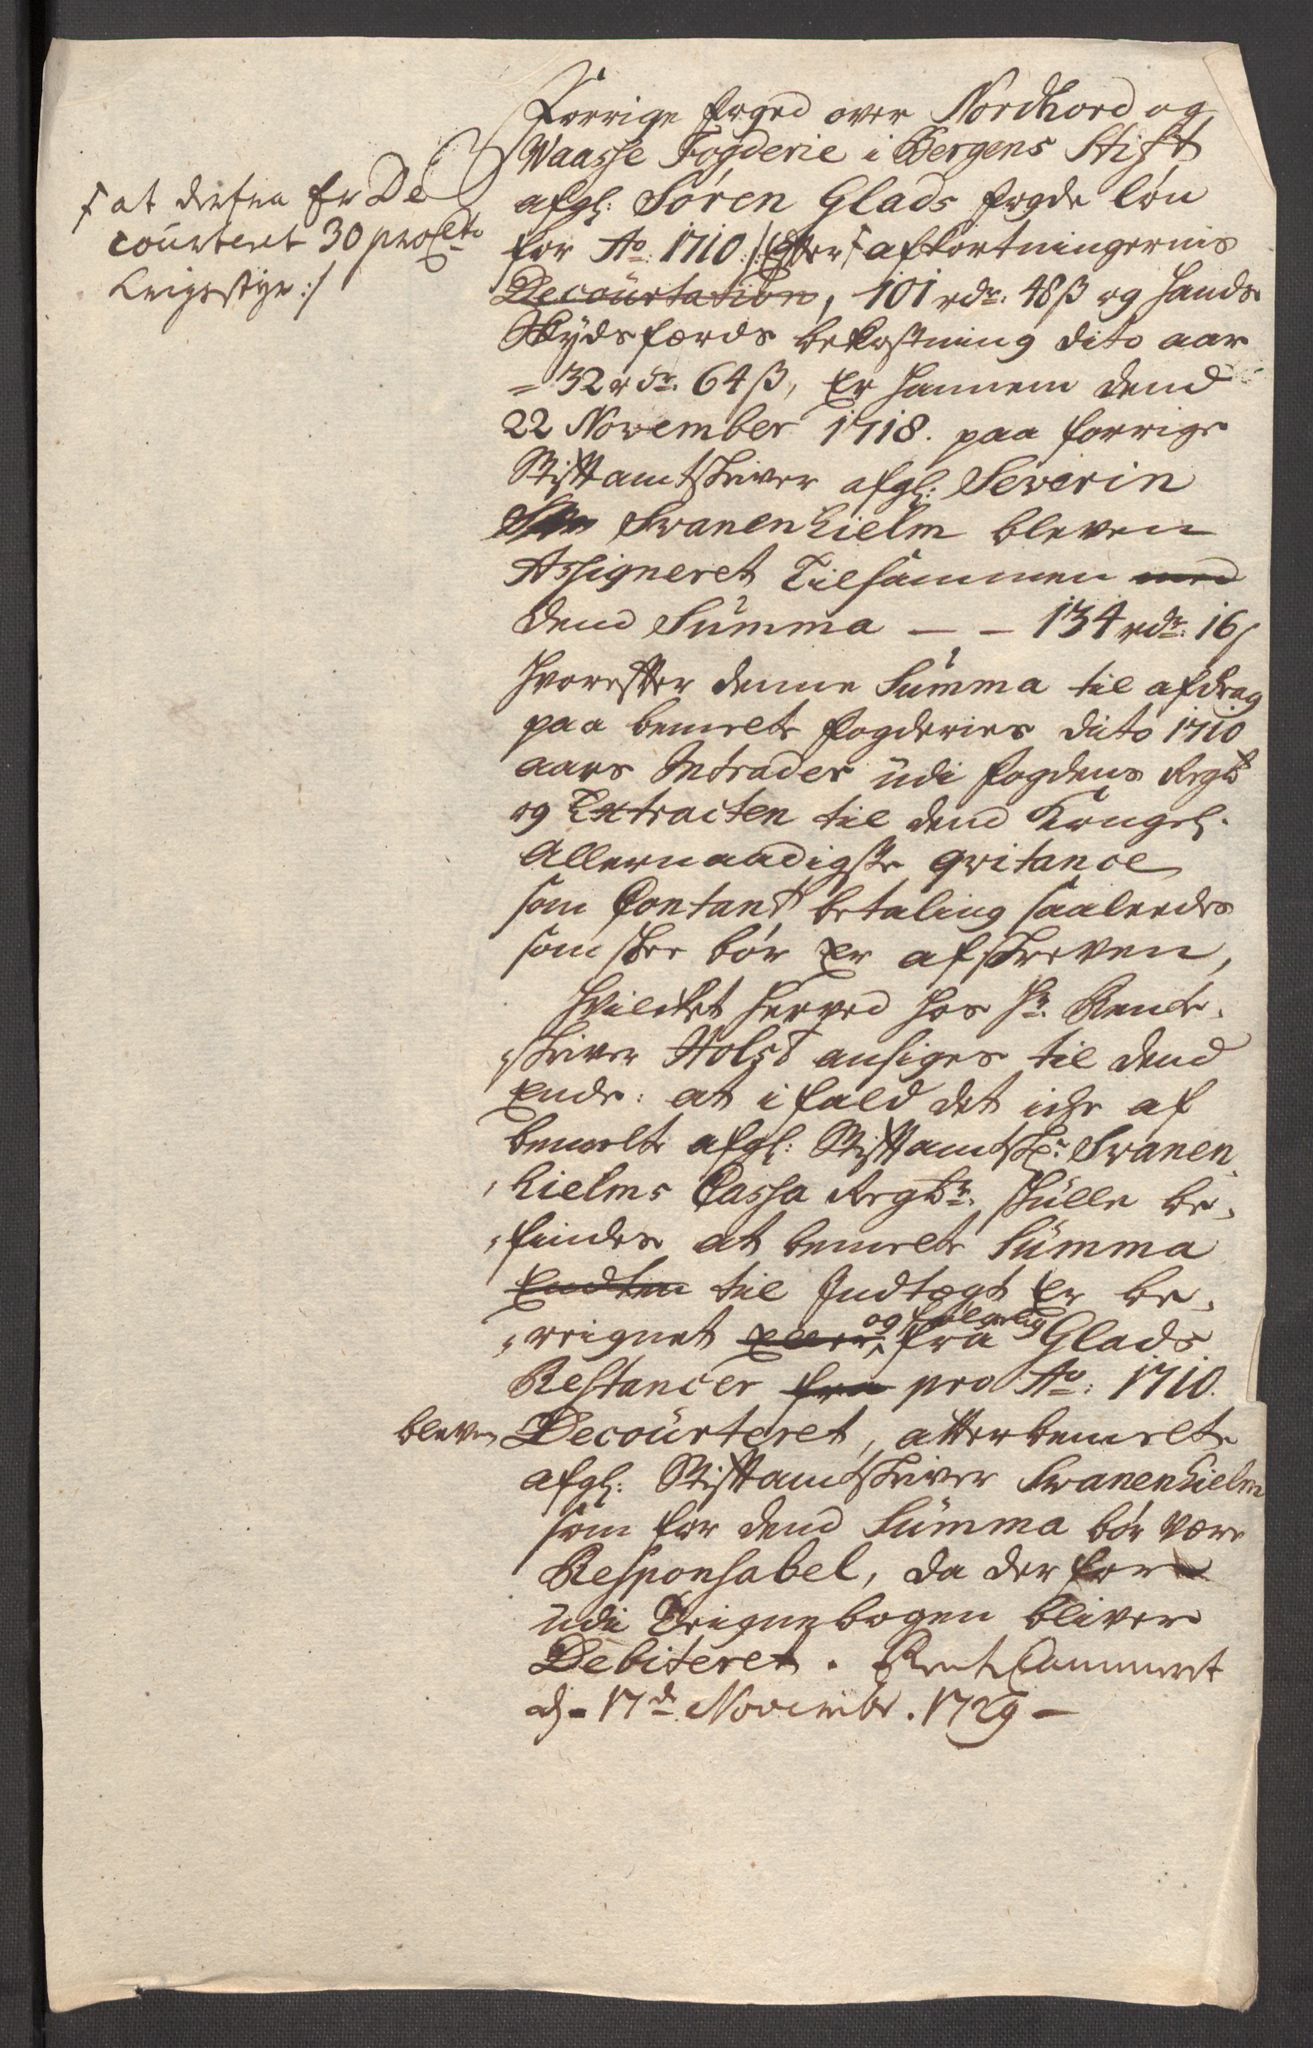 Forrige foged over Nordhord og
Waasse Fogderie i Bergens Stift
afgl: Søren Glads fogde løn
for Ao: 1710 /: Efter afkortningernis
Decourtation, 101 rdr: 48 ß og hands
Skydsfærds bekostning dito aar
= 32 rdr: 64 ß, Er hannem dend
22 November 1718. paa forrige
Stiftamtskriver afgl: Severin
Svanenhielm bleven
Assigneret Tilsammen med
dend Summa — — 134 rdr: 16 ß
hvorefter denne Summa til afdrag
paa bemelte fogderies dito 1710
aars Intrader udi fogdens Regnsk
og Extracten til dend Kongel.
Allernaadigste qvitance
som Contant betaling saaleedes
som skee bør Er afskreven,
hvilcket herved hos Hr. Rente-
skriver Holst ansiges til dend
Ende: at ifald det icke af
bemelte afgl: Stiftamtskr: Svanen-
hielms Cassa Regnsk: skulle be-
findes at bemelte Summa
Endten til Indtægt Er be-
reignet eller og følgelig fra Glads
Restancer fra pro Ao: 1710.
bleven Decourteret, atter bemelte
afgl: Stiftamtskriver Svanenhielm
som for dend Summa bør være
Responsabel, da der for
udi Reignebogen bliver
Debiteret. RenteCammeret
d. 17de Novembr. 1729 —
at derfra Er De
courteret 30 pro Cto
Krigsstyr :/